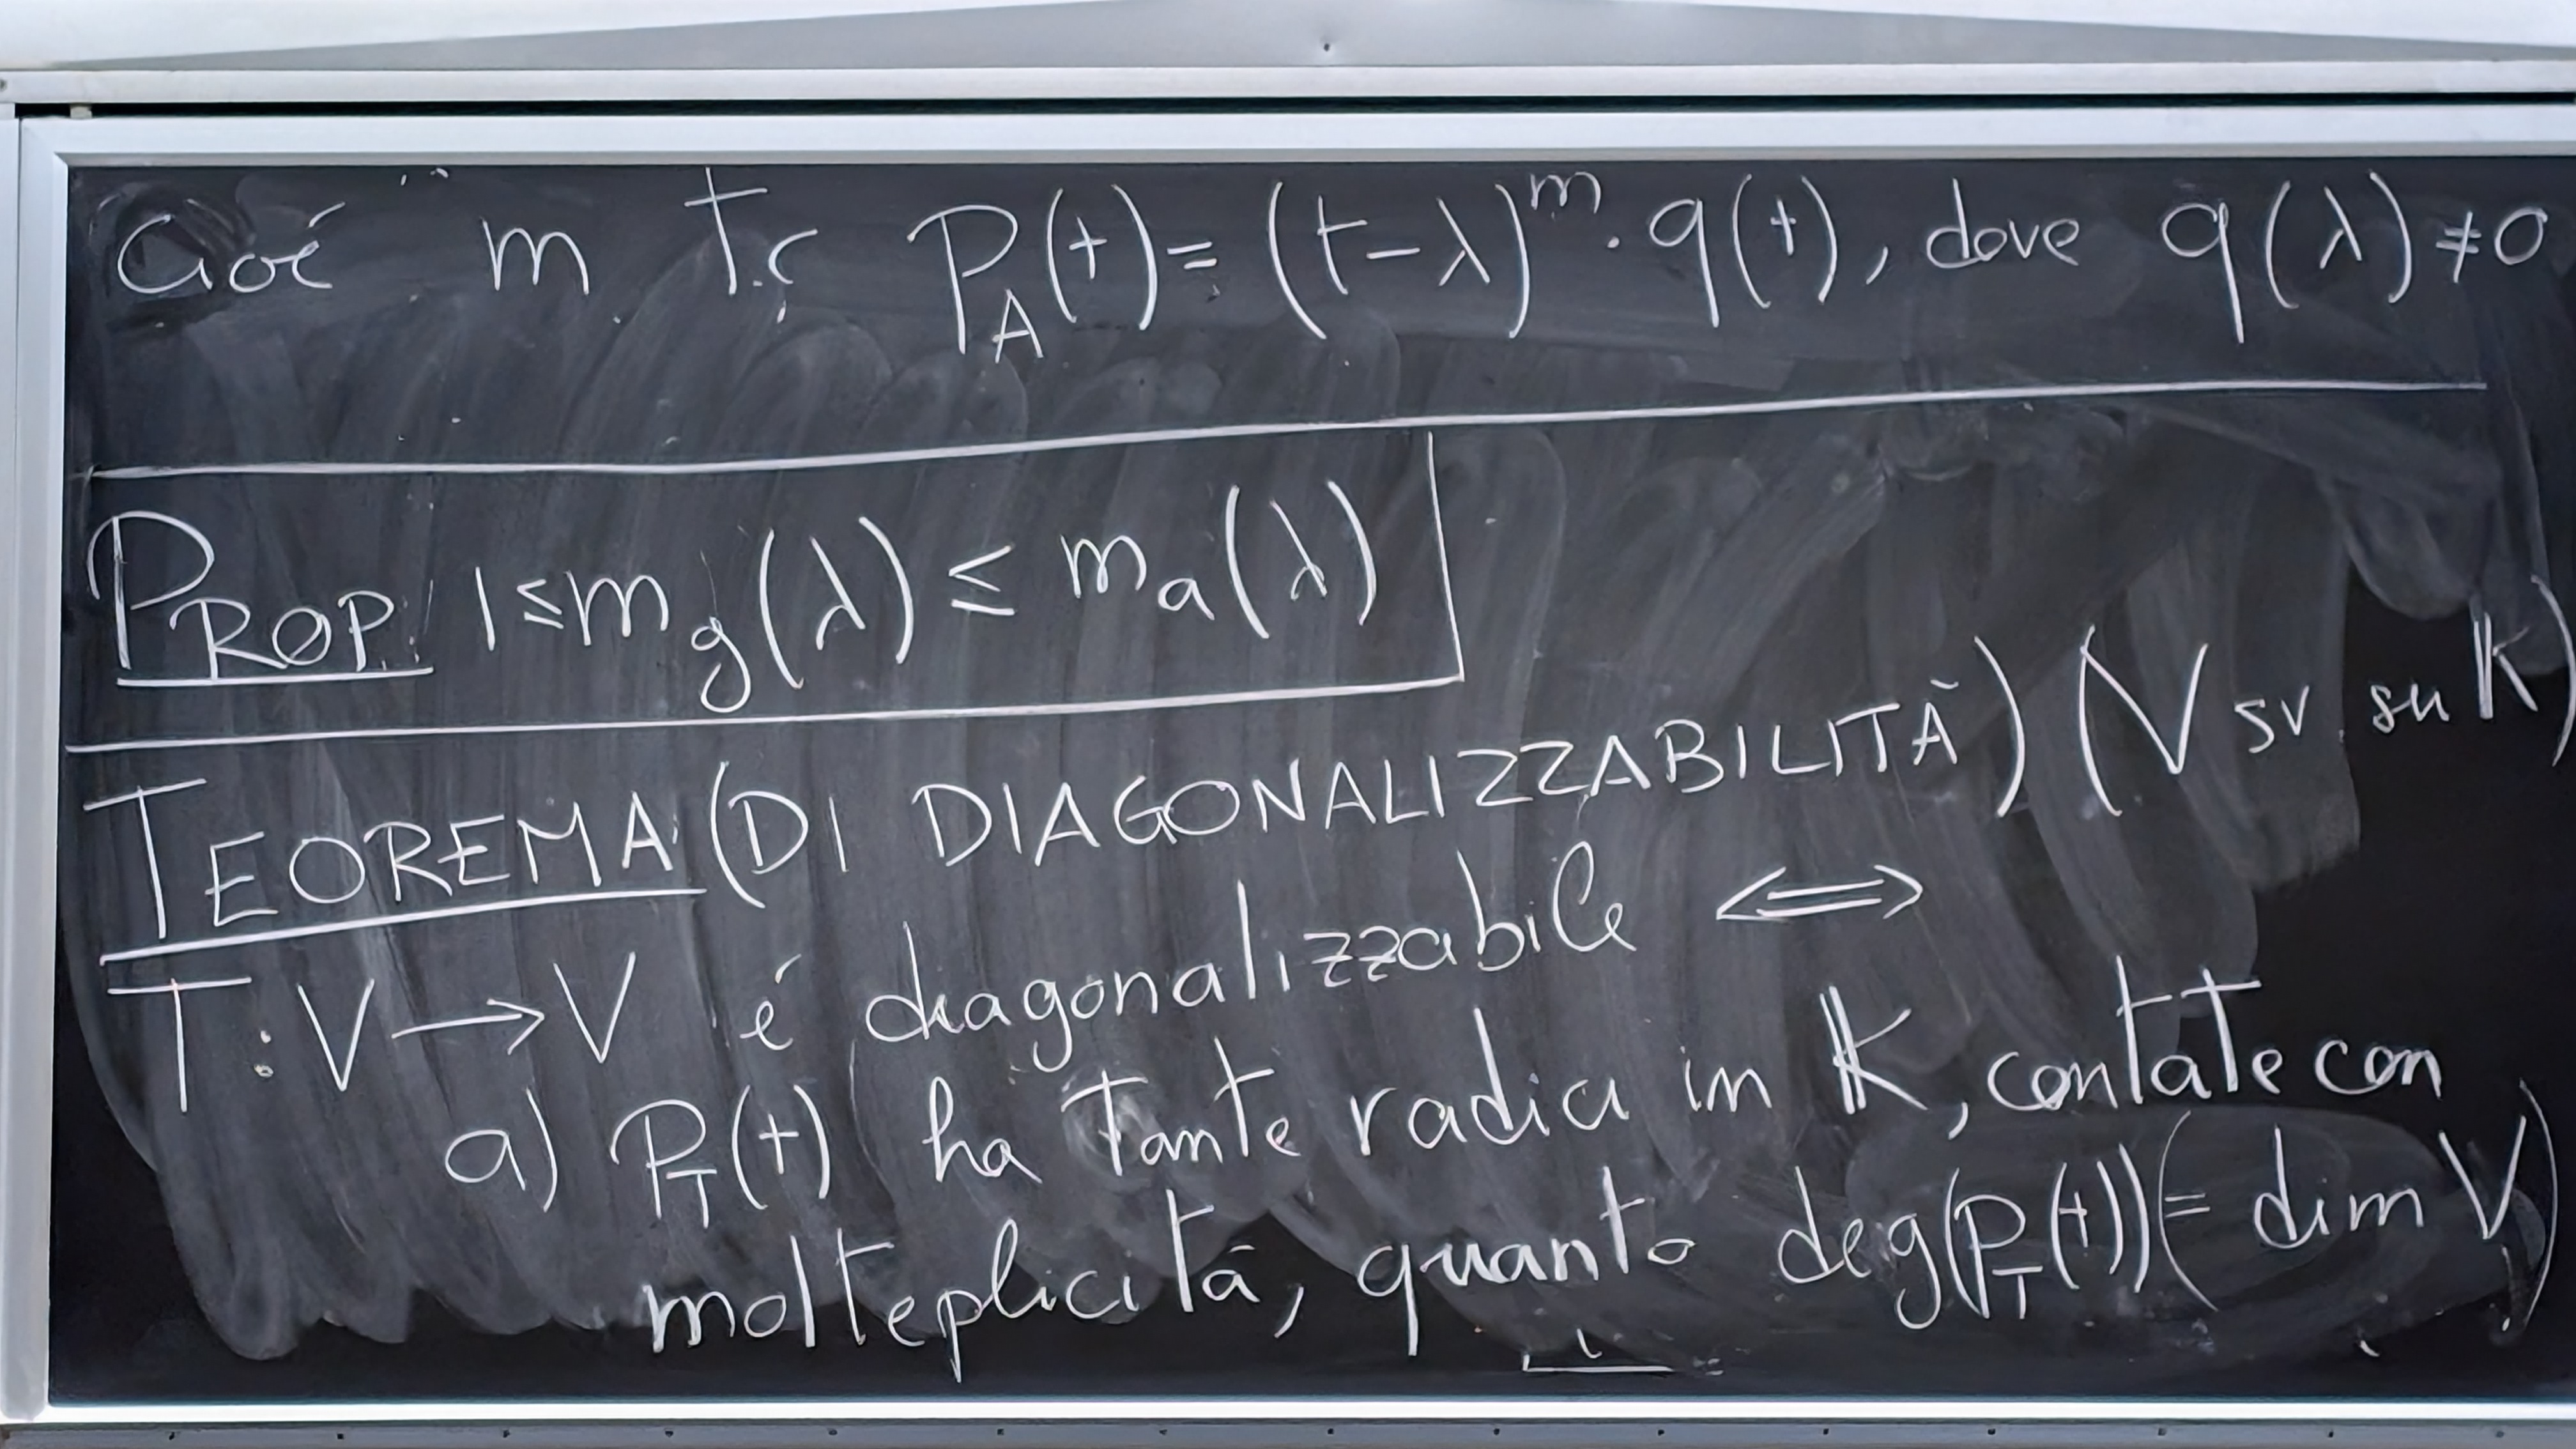 Cioé m t.c. P_A(t) = (t-λ)^m · q(t), dove q(λ) ≠ 0
PROP. 1 ≤ m_g(λ) ≤ m_a(λ)
TEOREMA (DI DIAGONALIZZABILITÀ) (V sv su K)
T: V → V é diagonalizzabile ⟺
a) P_T(t) ha tante radici in K, contate con
molteplicità, quanto deg(P_T(t)) (= dim V)